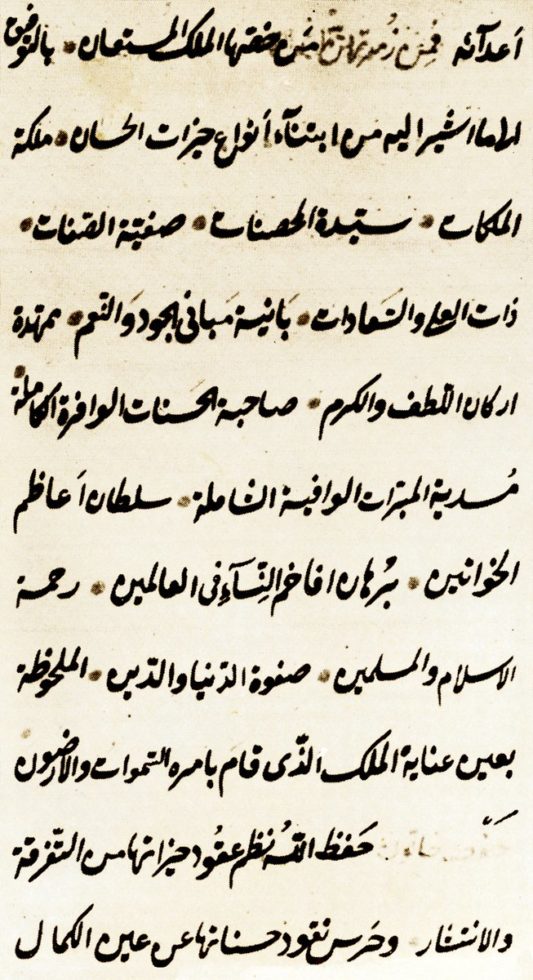 أعدآئه فمن زمرتهن من خصّها الملك المستعان بالتوفيق
لما اشير اليه من ابتنآء أنواع خيرات الحسان ملكة
الملكات سيّدة المحصنات صفيّة الصّفات
ذات العلى والسّعادات بَانية مَبانى الجود وَالنّعم ممهّدة
اركان اللّطف والكرم صاحبة الحَسنات الوافرة الكاملة
مُسدية المبرّات الوافية الشّاملة سلطان أعاظم
الخوانين بُرهان افاخم النِّسآءِ فى العالمين رحمة
الاسلام والمسلمين صفوة الدّنيا والدّين الملحوظة
بعين عناية الملك الّذى قام بامره السّموات والأرضون
حَفظ اللّهُ نظم عقُود خيراتها من التّفرقة
والانتشار وحَرس نقود حسناتها عن عين الكمال